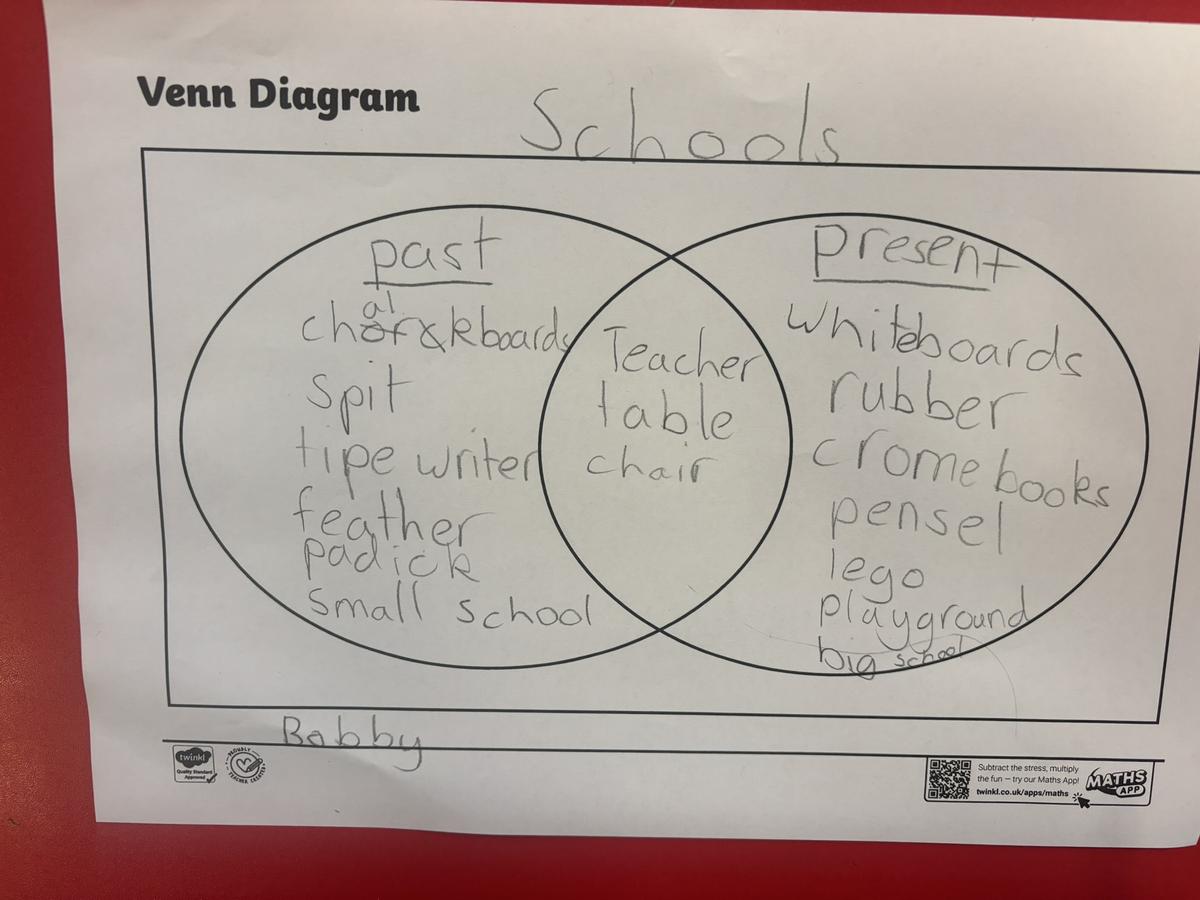 Venn Diagram
Schools
past
chalkboards
spit
tipe writer
feather
padick
small school
Teacher
table
chair
present
whiteboards
rubber
crome books
pensel
lego
playground
big school
Bobby
twinkl
Quality Standard
Approved
PROUDLY
TEACHER CREATED
Subtract the stress, multiply
the fun – try our Maths App!
twinkl.co.uk/apps/maths
MATHS
APP